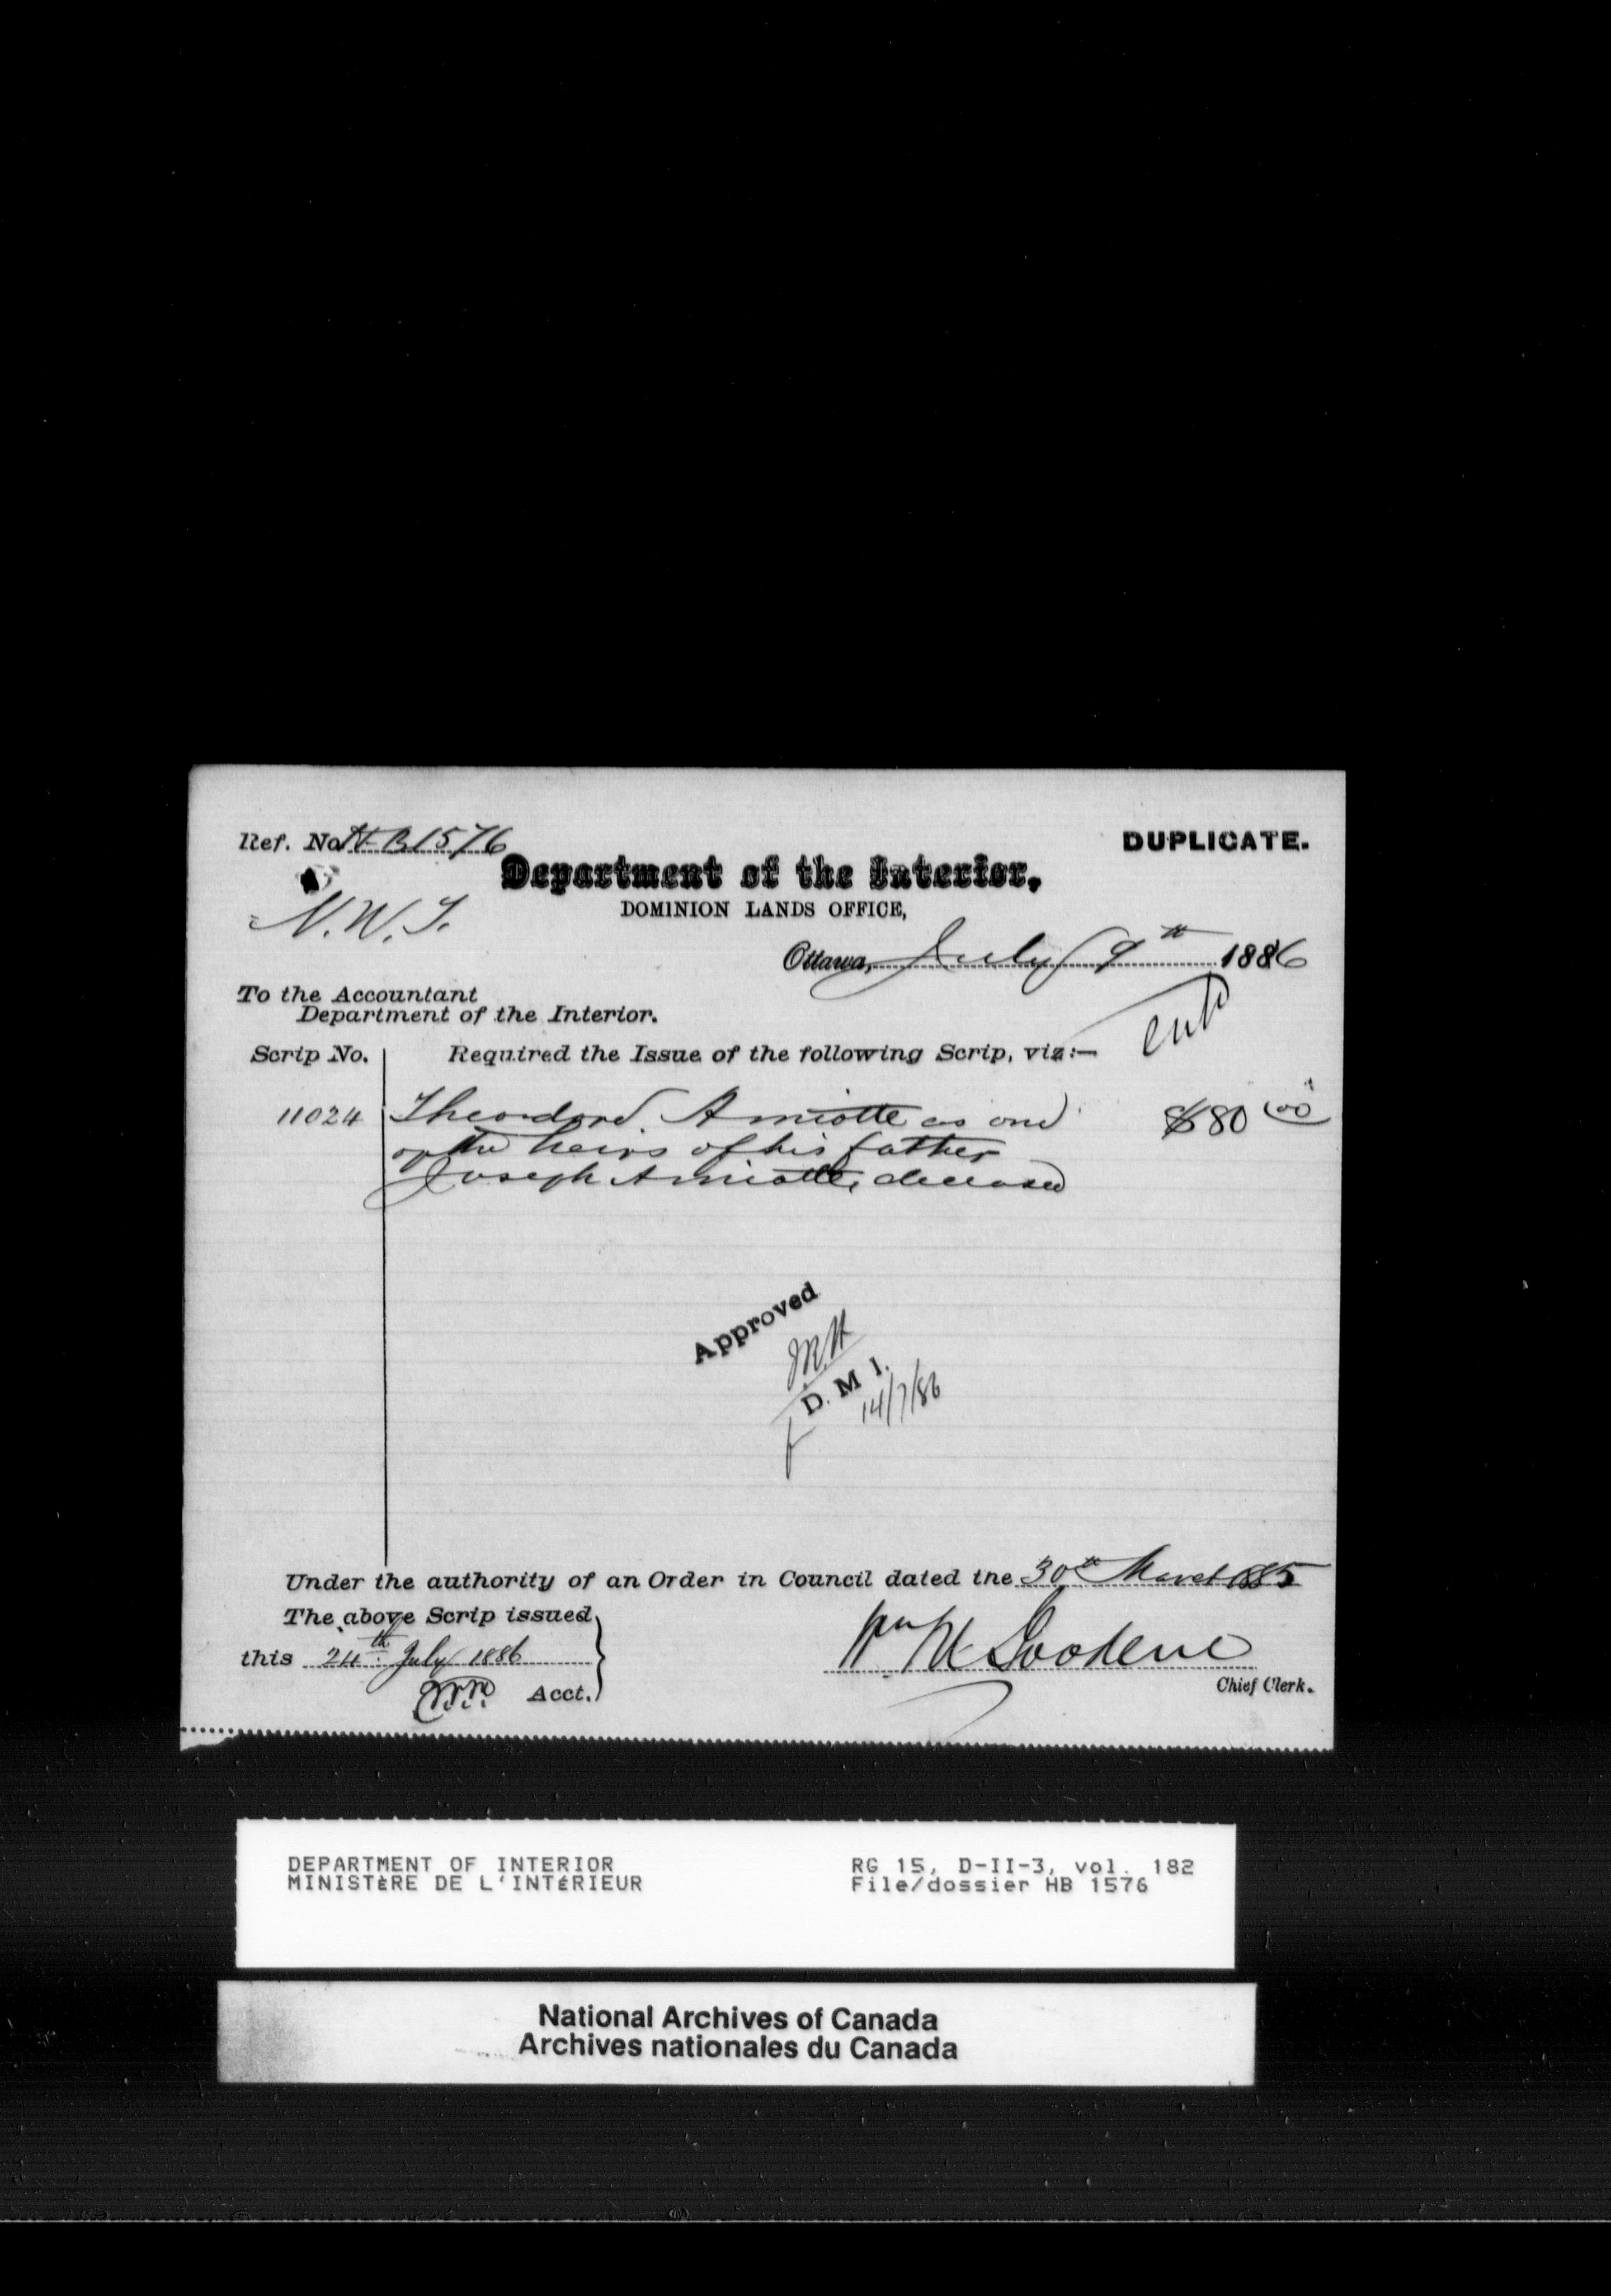 Ref. No H.B 1576
DUPLICATE.
Department of the Interior,
DOMINION LANDS OFFICE,
N.W.T.
Ottawa, July 9th 1886
To the Accountant
Department of the Interior.
Scrip No. Required the Issue of the following Scrip, viz:—
11024 Theodore Amiotte as one $80 00
of the heirs of his father
Joseph Amiotte, deceased
Approved
D. M I.
14/7/86
Under the authority of an Order in Council dated the 30th March 1885
The above Scrip issued
this 24th July 1886
Acct.
Chief Clerk.
DEPARTMENT OF INTERIOR
MINISTÈRE DE L'INTÉRIEUR
RG 15, D-II-3, vol. 182
File/dossier HB 1576
National Archives of Canada
Archives nationales du Canada